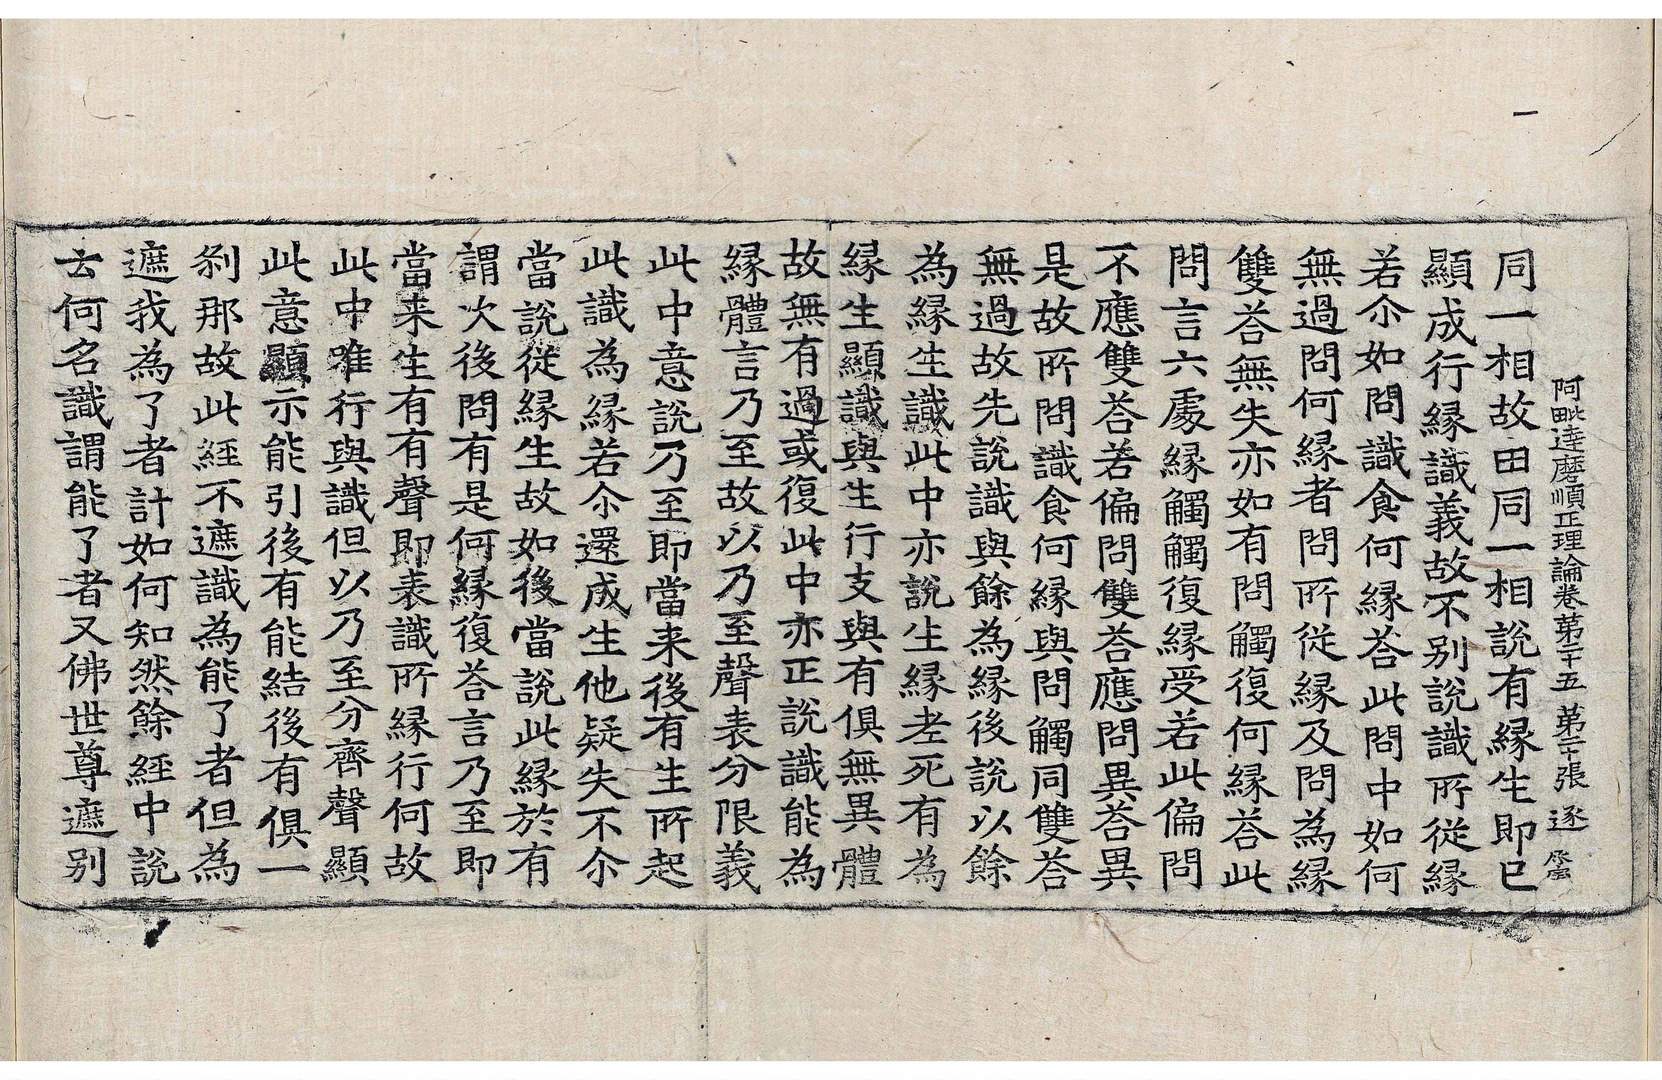 阿毗達磨順正理論卷第二十五 第二十張 逐
同一相故由同一相說有緣生即已
顯成行緣識義故不別說識所從緣
若尒如問識食何緣荅此問中如何
無過問何緣者問所從緣及問為緣
雙荅無失亦如有問觸復何緣荅此
問言六處緣觸觸復緣受若此偏問
不應雙荅若偏問雙荅應問異荅異
是故所問識食何緣與問觸同雙荅
無過故先說識與餘為緣後說以餘
為緣生識此中亦說生緣老死有為
緣生顯識與生行支與有俱無異體
故無有過或復此中亦正說識能為
緣體言乃至故以乃至聲表分限義
此中意說乃至即當来後有生所起
此識為緣若尒還成生他疑失不尒
當說從緣生故如後當說此緣於有
謂次後問有是何緣復荅言乃至即
當来生有有聲即表識所緣行何故
此中唯行與識但以乃至分齊聲顯
此意顯示能引後有能結後有俱一
剎那故此經不遮識為能了者但為
遮我為了者計如何知然餘經中說
云何名識謂能了者又佛世尊遮別